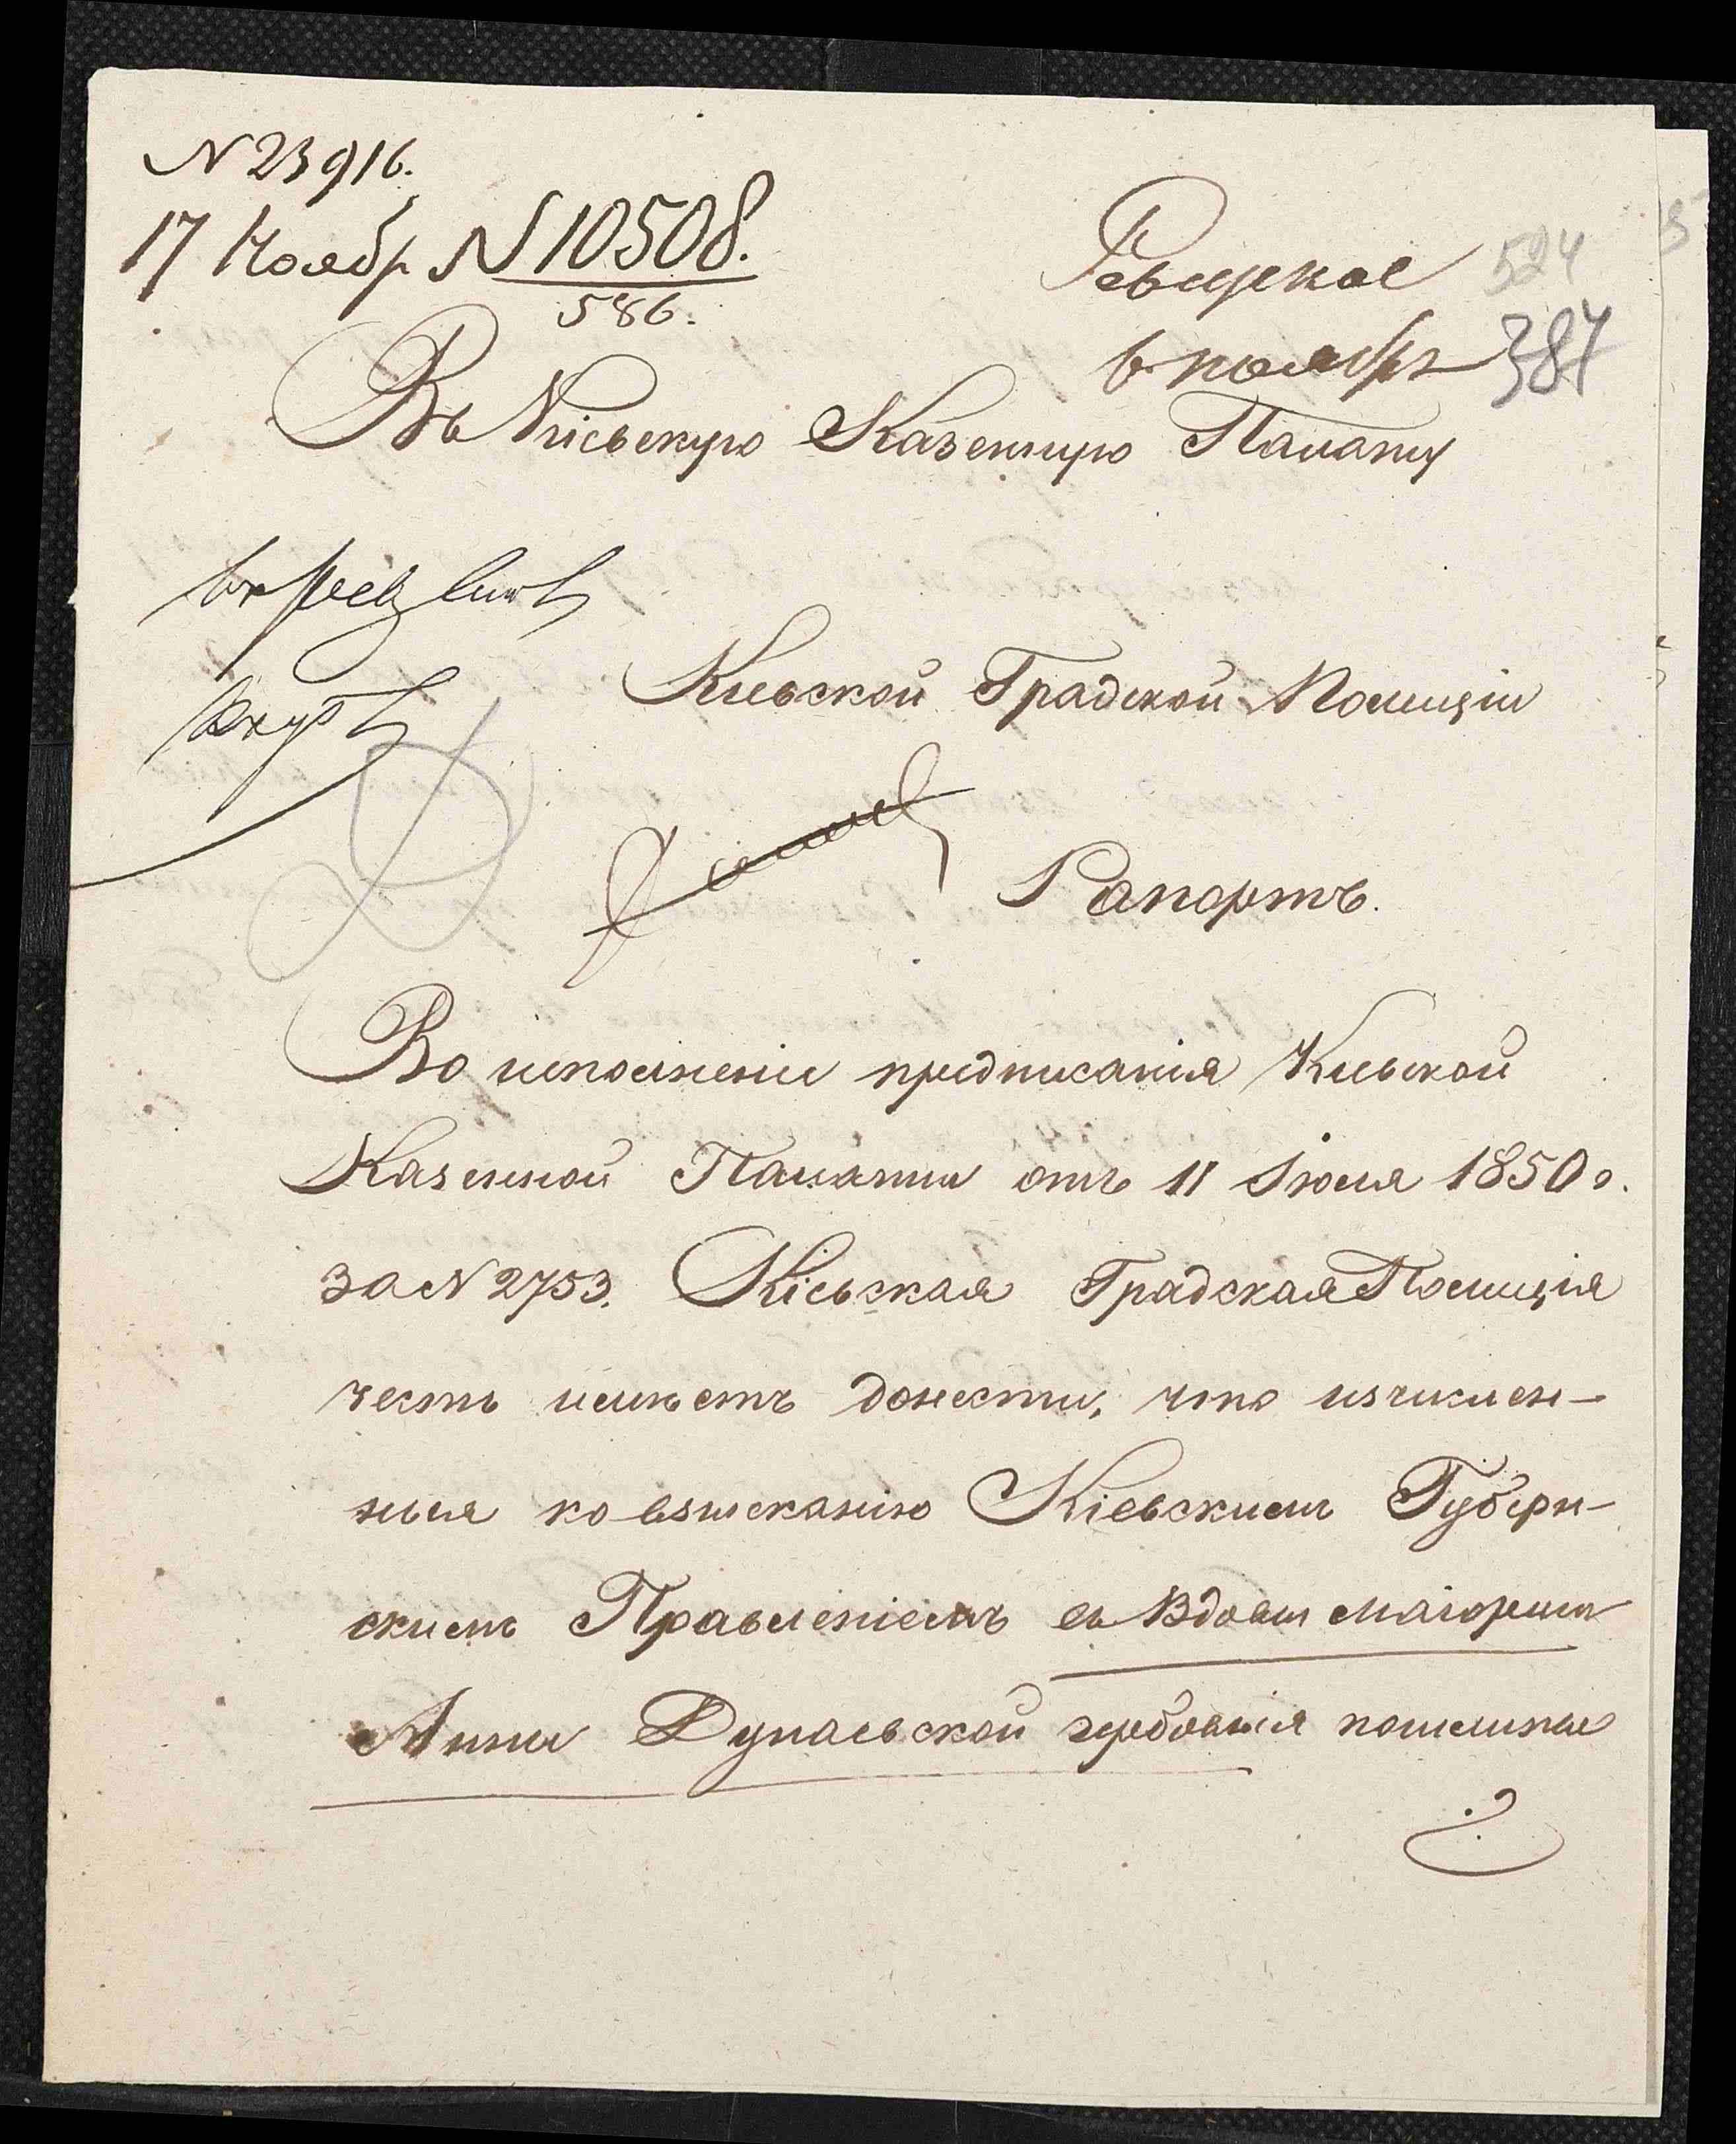 N 23916.
17 Ноябр N 10508.
586.
524
в ноябрѣ 387
Въ Кіевскую Казенную Палату
Кіевской Градской Полиціи
Рапортъ.
Во исполненіе предписанія Кіевской
Казенной Палаты отъ 11 Іюля 1850 г.
за N 2753. Кіевская Градская Полиція
честь имѣетъ донести, что изчислен-
ныя ко взысканію Кіевскимъ Губерн-
скимъ Правленіемъ съ Вдовы Маіорши
Анны Дунаевской гербовыя пошлины